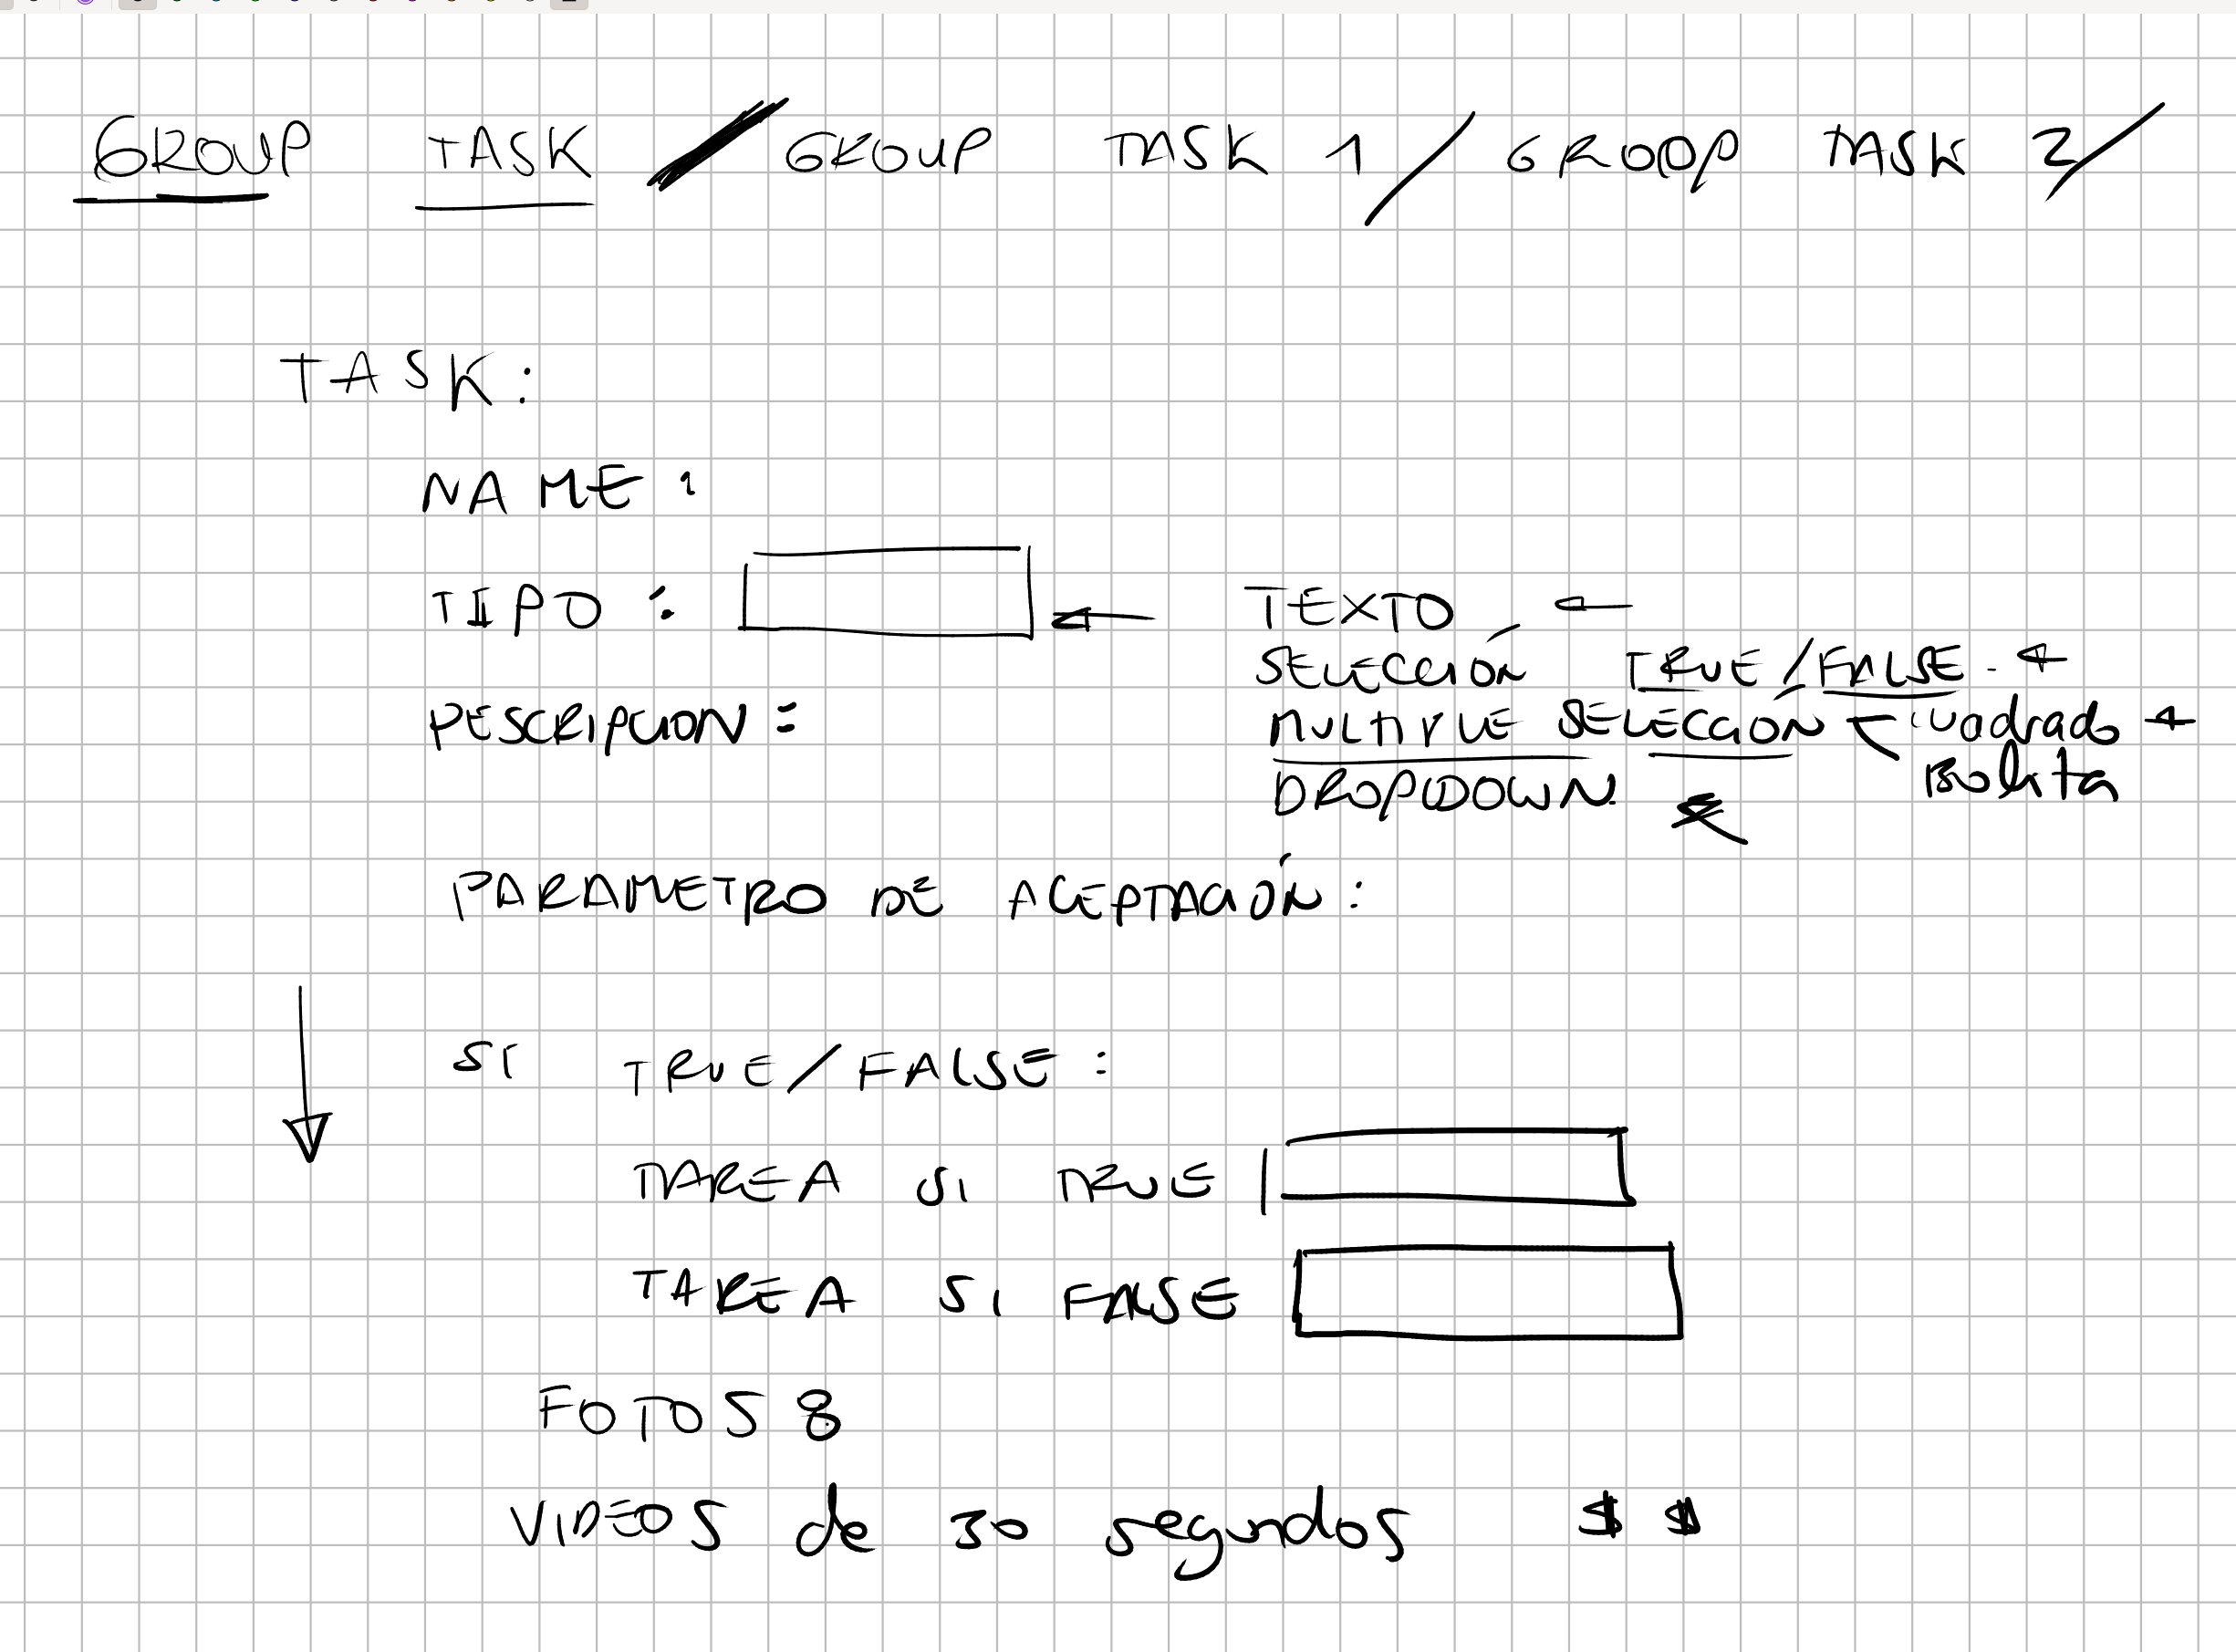 GROUP TASK / GROUP TASK 1 / GROOP TASK 2 /
TASK:
NAME:
TIPO: ← TEXTO ←
SELECCIÓN TRUE/FALSE. ←
DESCRIPCION: MULTIPLE SELECCIÓN ← cuadrado +
Bolita
DROPDOWN ←
PARAMETRO DE ACEPTACIÓN:
SI TRUE/FALSE:
TAREA SI TRUE
TAREA SI FALSE
FOTOS 8
VIDEOS de 30 segundos $ $